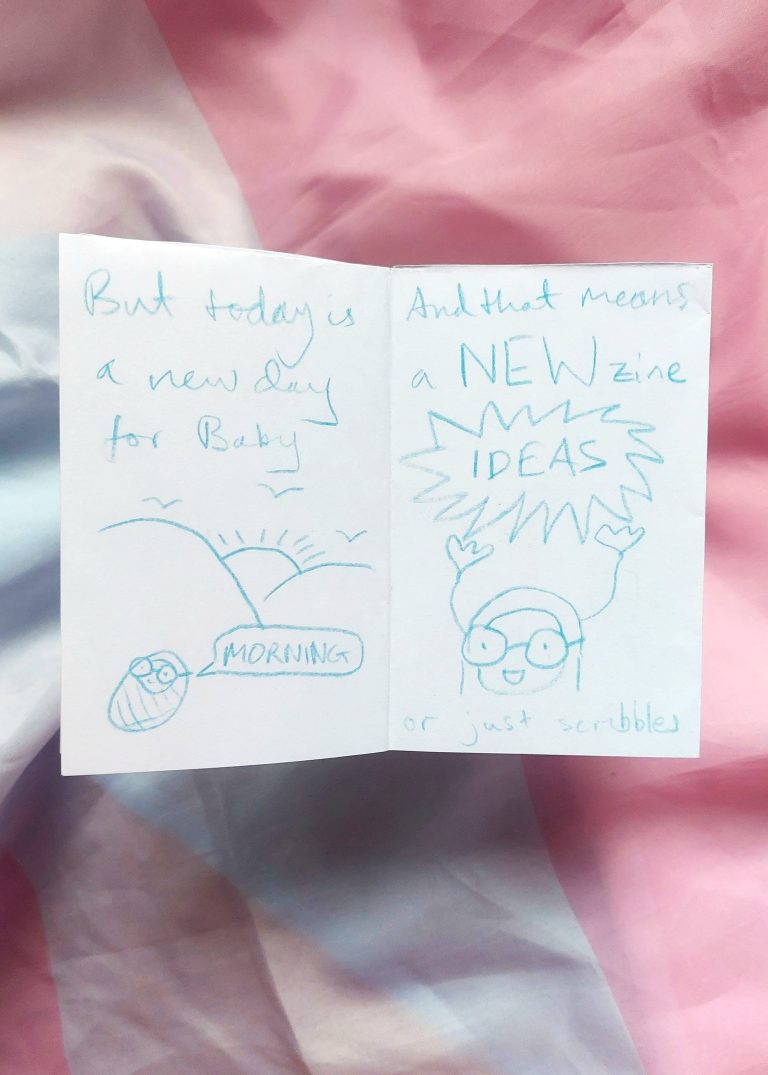 But today is
a new day
for Baby
MORNING
And that means
a NEW zine
IDEAS
or just scribbles